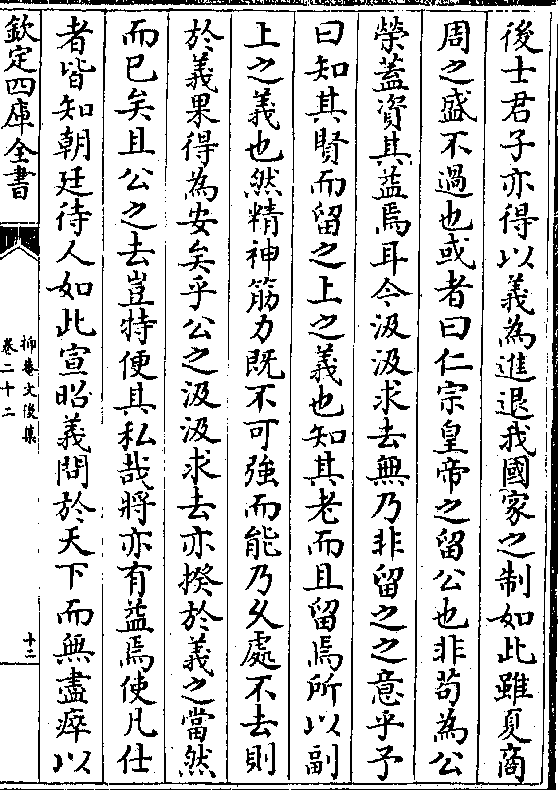 後士君子亦得以義為進退我國家之制如此雖夏商
周之盛不過也或者曰仁宗皇帝之留公也非苟為公
榮蓋資其益焉耳今汲汲求去無乃非留之之意乎予
曰知其賢而留之上之義也知其老而且留焉所以副
上之義也然精神筋力既不可強而能乃久處不去則
於義果得為安矣乎公之汲汲求去亦揆於義之當然
而已矣且公之去豈特便其私哉將亦有益焉使凡仕
者皆知朝廷待人如此宣昭義問於天下而無盡瘁以
欽定四庫全書
抑菴文後集
卷二十二
十三